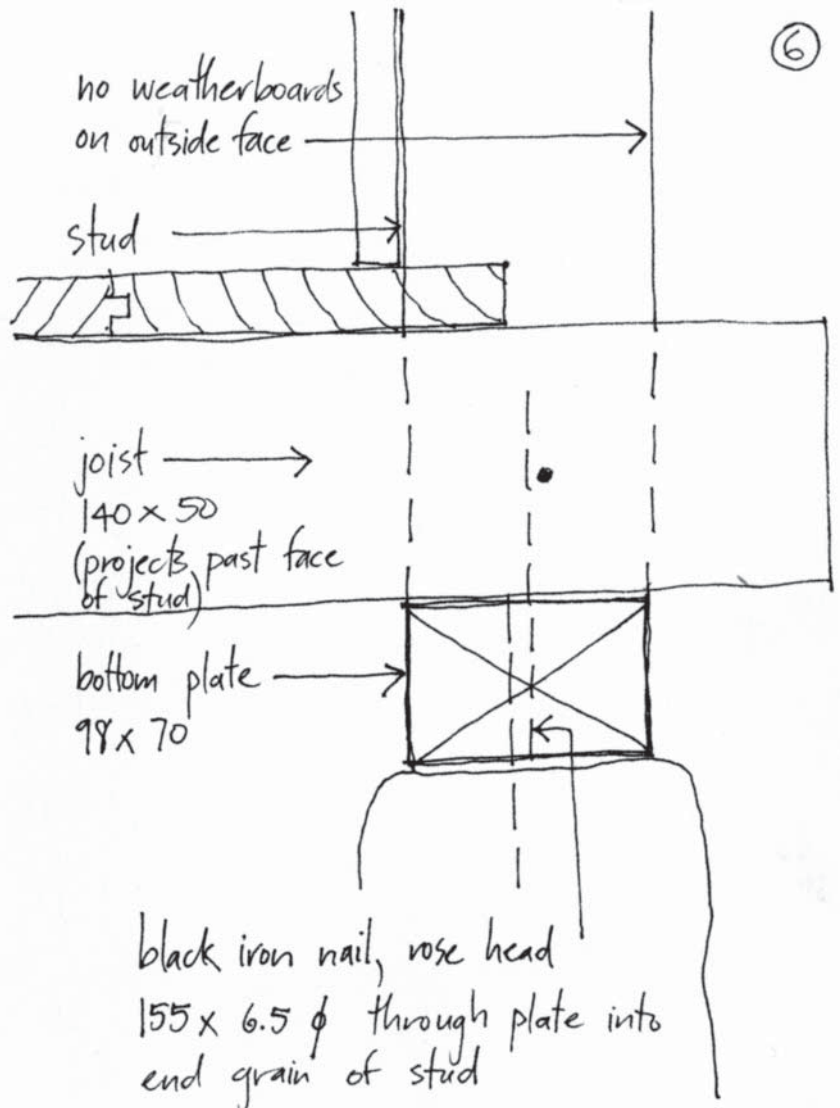 6
no weatherboards
on outside face
stud
joist
140 x 50
(projects past face
of stud)
bottom plate
98 x 70
black iron nail, rose head
155 x 6.5 ϕ through plate into
end grain of stud